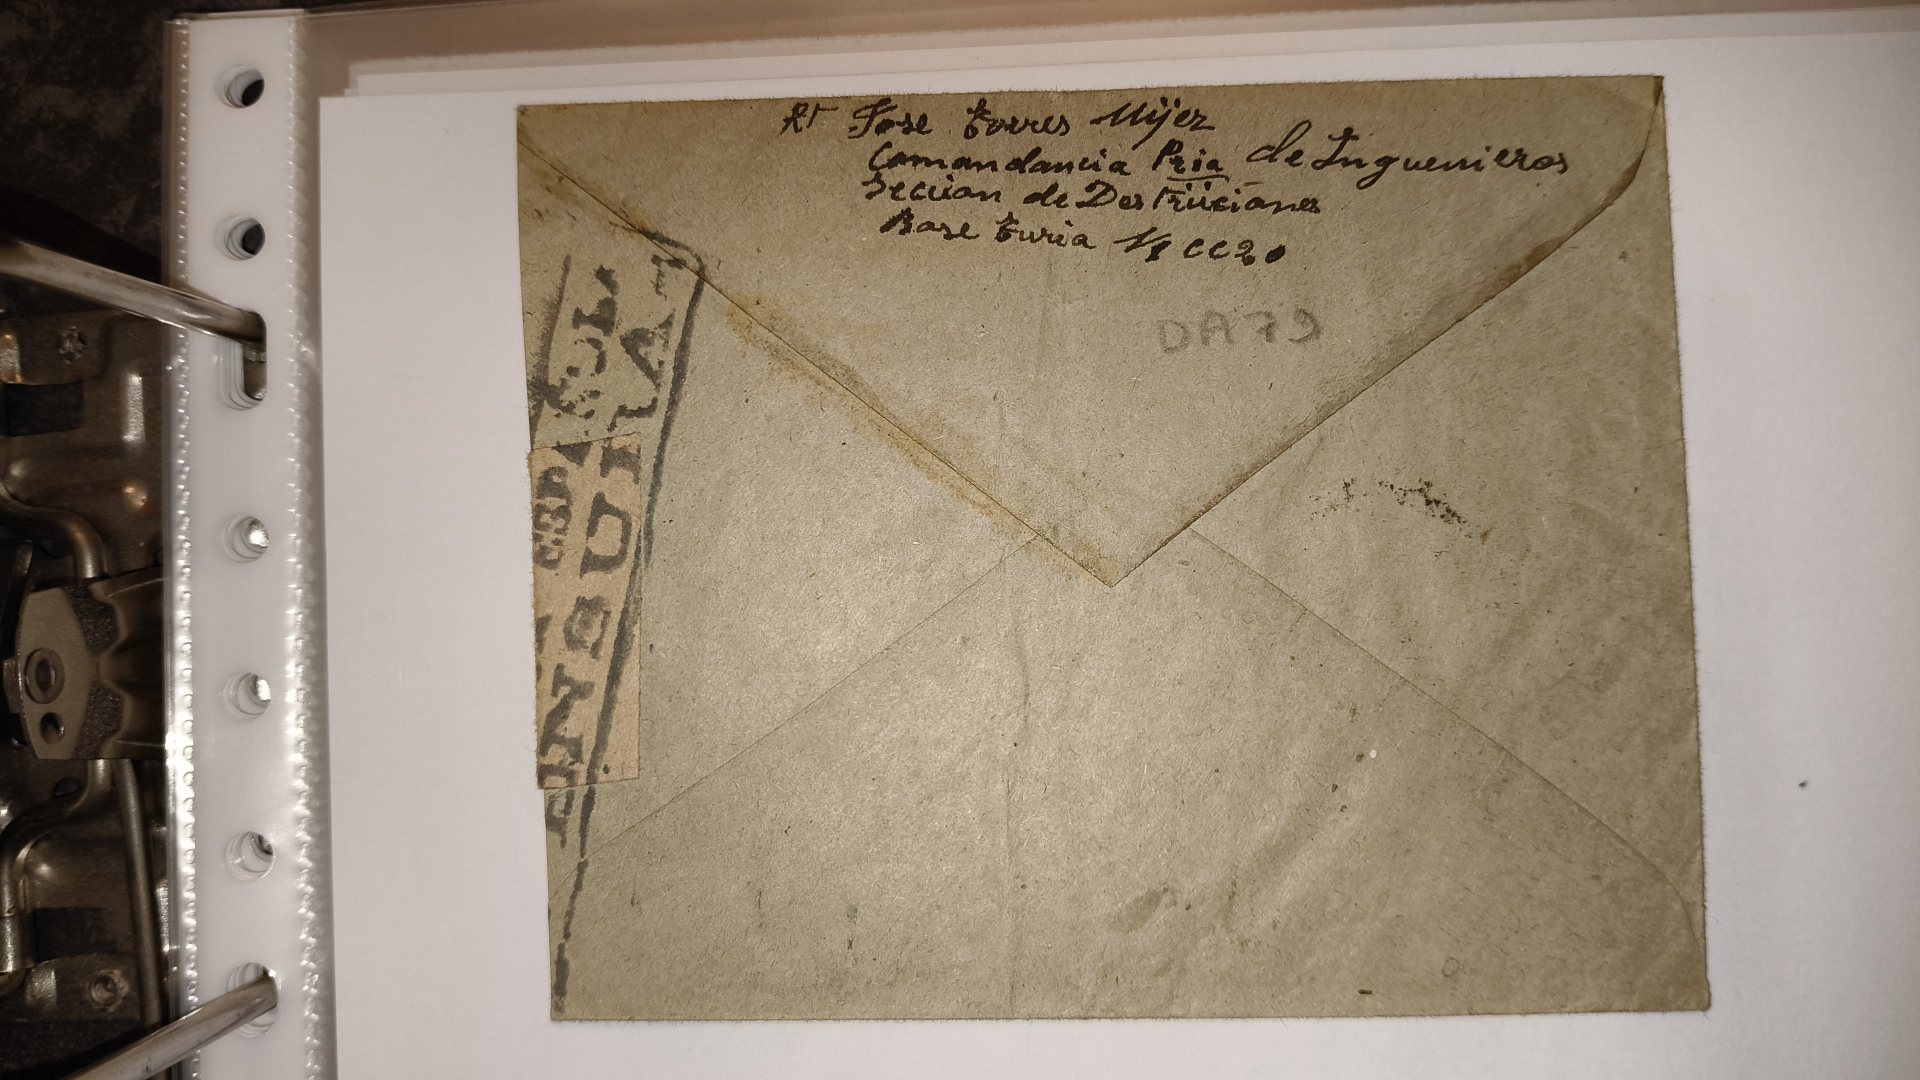 Rt Jose torres Mijez
Comandancia Pria de Inguenieros
Seccion de Destrüciones
Base turia CC20
DA79
ESPAÑOL